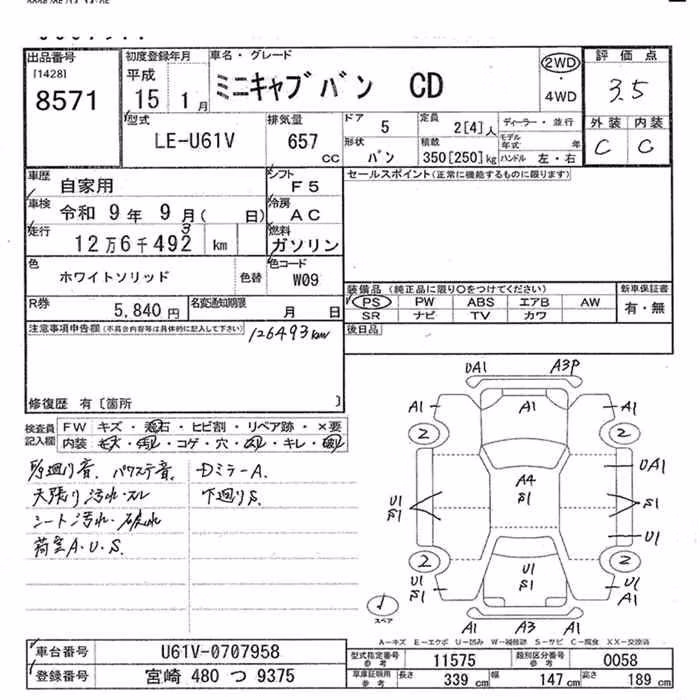 出品番号
[1428]
8571
初度登録年月
平成
15 1月
車名・グレード
ミニキャブバン CD
2WD
・
4WD
評価点
3.5
外装 内装
C C
型式
LE-U61V
排気量
657
CC
ドア 5
形状 バン
定員 2[4]人
積載 350[250]kg
ディーラー・並行
モデル年式 年
ハンドル 左・右
車歴 自家用
車検 令和 9年 9月( 日)
走行 12万6千492 km
3
シフト F5
冷房 AC
燃料 ガソリン
セールスポイント(正常に機能するものに限ります)
色 ホワイトソリッド
色替
色コード W09
R券 5,840円
名変通知期限 月 日
装備品(純正品に限り○をつけてください)
PS PW ABS エアB AW
SR ナビ TV カワ
新車保証書
有・無
後日品
注意事項申告欄(不具合内容等は具体的に記入して下さい)
126493km
修復歴 有〔箇所 〕
検査員記入欄
FW キズ・飛石・ヒビ割・リペア跡・×要
内装
コゲ・穴
キレ
パワステ音
Dミラ-A.
天張り汚れ・スレ
下廻りS.
シート汚れ・破れ
荷室A.U.S.
UA1 A3P
A1 A1 A1
2 2
UA1
A4
S1
U1
S1
S1
U1
2 2
U1
S1
U1
S1
U1
A1
A1 A3 A1
スペア
A-キズ E-エクボ U-凹み W-補修跡 S-サビ C-腐食 XX-交換済
車台番号 U61V-0707958
登録番号 宮崎 480 つ 9375
型式指定番号 参考 11575
類別区分番号 参考 0058
車庫証明用 参考 長さ 339 cm 幅 147 cm 高さ 189 cm